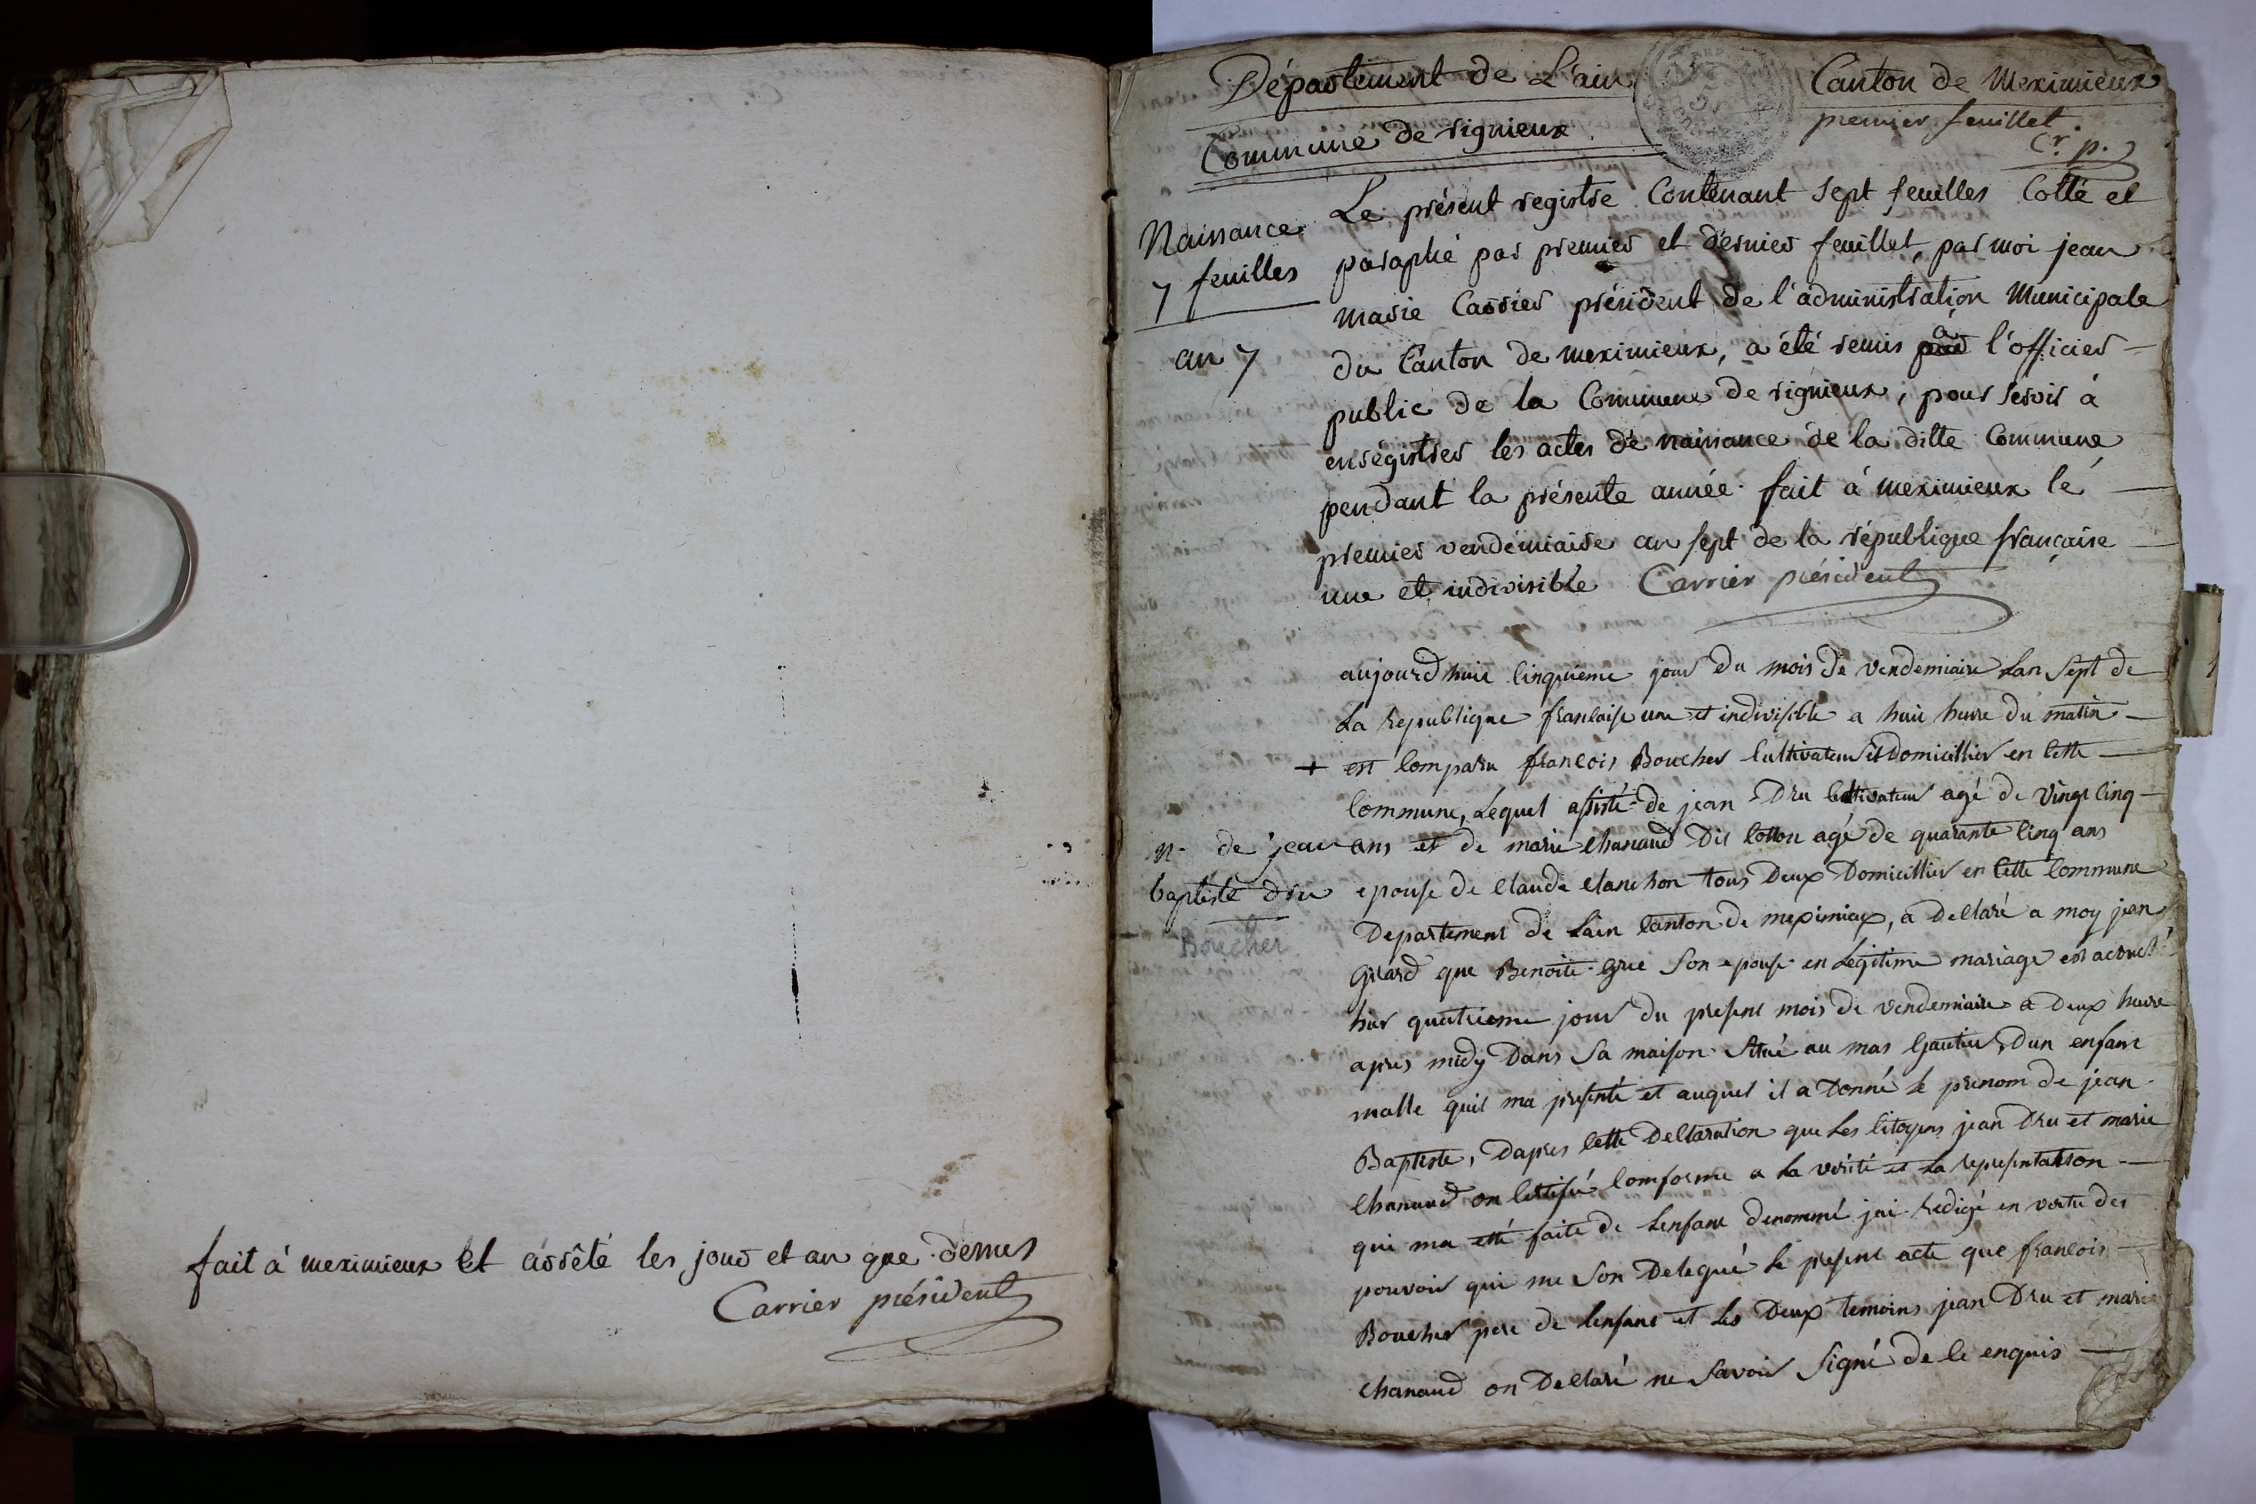 fait à meximieux et arrêté les jour et an que dessus
Carrier président
Département de L'ain
Canton de Meximieux
premier feuillet
Cr. p.
Commune de rignieux
Naissance
7 feuilles
an 7
Le présent registre Contenant Sept feuilles Cotté et
paraphé par premier et dernier feuillet, par moi jean
marie Carrier président de l'administration Municipale
du Canton de meximieux, a été remis par à l'officier
public de la Commune de rignieux, pour servir à
enrégistrer les actes de naissance de la ditte Commune
pendant la présente année. fait à meximieux le
premier vendémiaire an sept de la république française
une et indivisible Carrier président
aujourdhuit cinquieme jour du mois de vendemiaire Lan Sept de
La republique francaise une et indivisible a huit heure du matin
+ est comparu francois Boucher Cultivateur et Domicillier en cette
commune, Lequel assisté de jean Dru Cultivateur agé de vingt cinq
ans et de marie Chanaud Dit Cotton agé de quarante cinq ans
n. de jean
baptiste dru
Boucher
epouse de Claude Clanchon tous Deux Domicillier en Cette Commune
Departement de Lain Canton de meximieux, a Declaré a moy jean
Girard que Benoite Grie Son epouse en Légitime mariage est acouché
hier quatrieme jour du present mois de vendemiaire a Deux heure
apres midy Dans Sa maison Situé au mas Gautier, Dun enfant
malle quil ma presenté et auquel il a Donné le prenom de jean
Baptiste, Dapres cette Declaration que Les Citoyens jean Dru et marie
Chanaud on certifié Conforme a La vérité et La representation
qui ma été faite de Lenfant denommé jai Redigé en vertu des
pouvoir qui me Son Delegué le present acte que francois
Boucher pere de Lenfant et Les Deux temoins jean Dru et marie
Chanaud on Declaré ne Savoir Signé de ce enquis